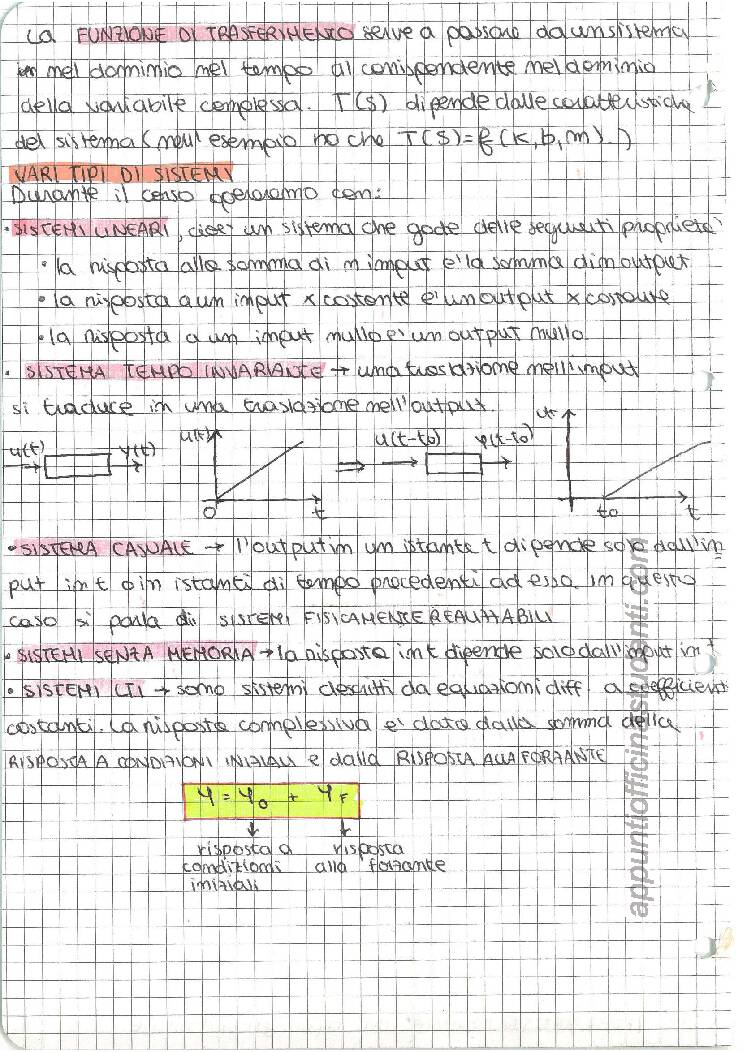 La FUNZIONE DI TRASFERIMENTO serve a passare da un sistema
nel dominio nel tempo al corrispondente nel dominio
della variabile complessa. T(s) dipende dalle caratteristiche
del sistema (nell'esempio ho che T(S)=f(K,b,m).)
VARI TIPI DI SISTEMI
Durante il corso opereremo con:
• SISTEMI LINEARI, cioè un sistema che gode delle seguenti proprietà
• la risposta alla somma di n input è la somma di n output
• la risposta a un input x costante è un output x costante
• la risposta a un input nullo è un output nullo.
• SISTEMA TEMPO INVARIANTE → una traslazione nell'input
si traduce in una traslazione nell'output.
u(t) y(t) u(t) 0 t ⇒ u(t-t0) y(t-t0) t0 t
• SISTEMA CASUALE → l'output in un istante t dipende solo dall'in
put in t o in istanti di tempo precedenti ad esso. In questo
caso si parla di SISTEMI FISICAMENTE REALIZZABILI
• SISTEMI SENZA MEMORIA → la risposta in t dipende solo dall'input in t
• SISTEMI LTI → sono sistemi descritti da equazioni diff. a coefficienti
costanti. La risposta complessiva è data dalla somma della
RISPOSTA A CONDIZIONI INIZIALI e dalla RISPOSTA ALLA FORZANTE
Y = Y0 + YF
risposta a risposta
condizioni alla forzante
iniziali
appuntiofficinastudenti.com